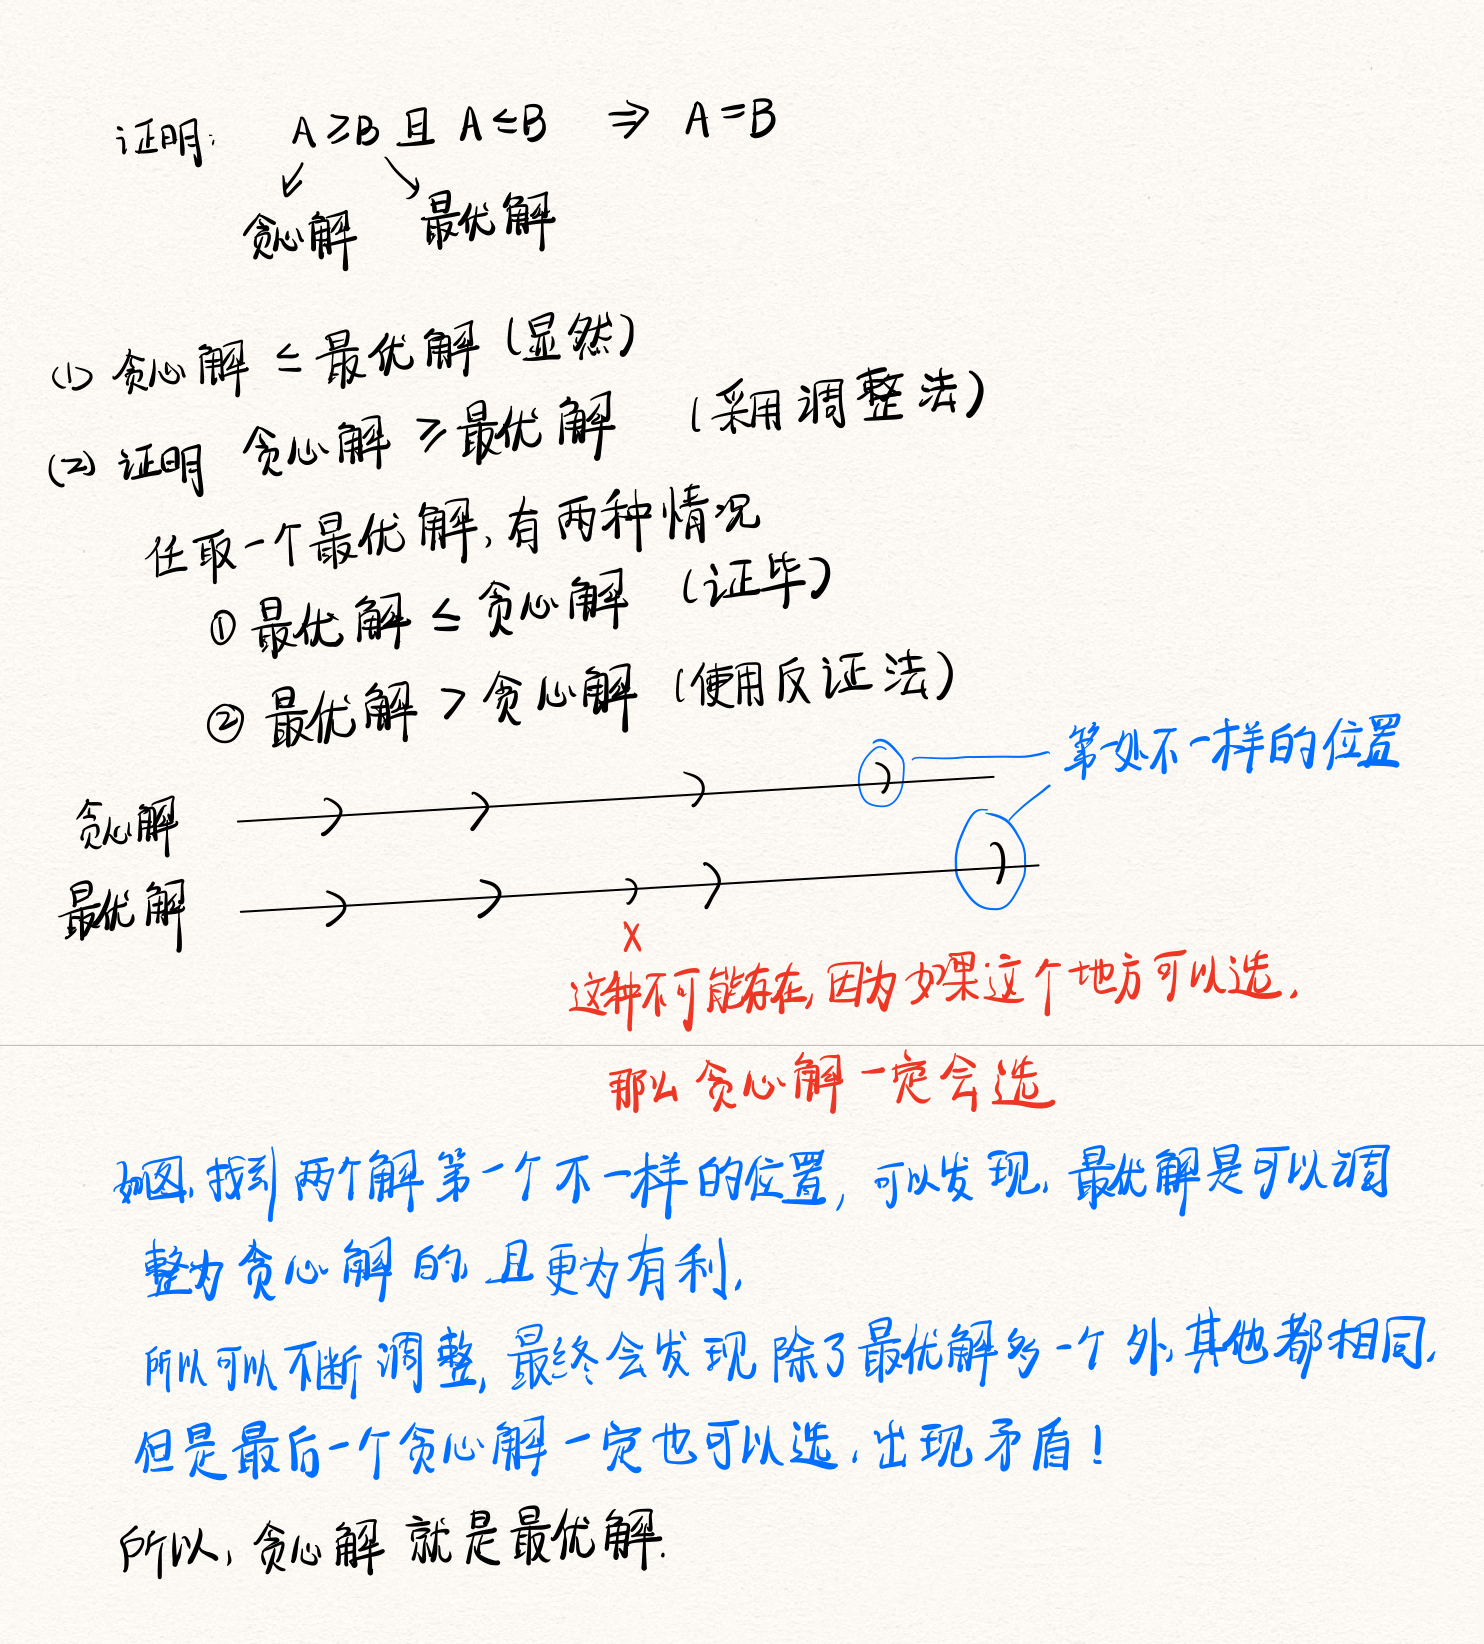 证明: A≥B 且 A≤B ⇒ A=B
贪心解 最优解
(1) 贪心解 ≤ 最优解 (显然)
(2) 证明 贪心解 ≥ 最优解 (采用调整法)
任取一个最优解, 有两种情况
① 最优解 ≤ 贪心解 (证毕)
② 最优解 > 贪心解 (使用反证法)
第一处不一样的位置
贪心解
最优解
×
这种不可能存在, 因为如果这个地方可以选,
那么贪心解一定会选
如图, 找到两个解第一个不一样的位置, 可以发现, 最优解是可以调
整为贪心解的, 且更为有利,
所以可以不断调整, 最终会发现除了最优解多一个外, 其他都相同,
但是最后一个贪心解一定也可以选, 出现矛盾!
所以, 贪心解就是最优解.